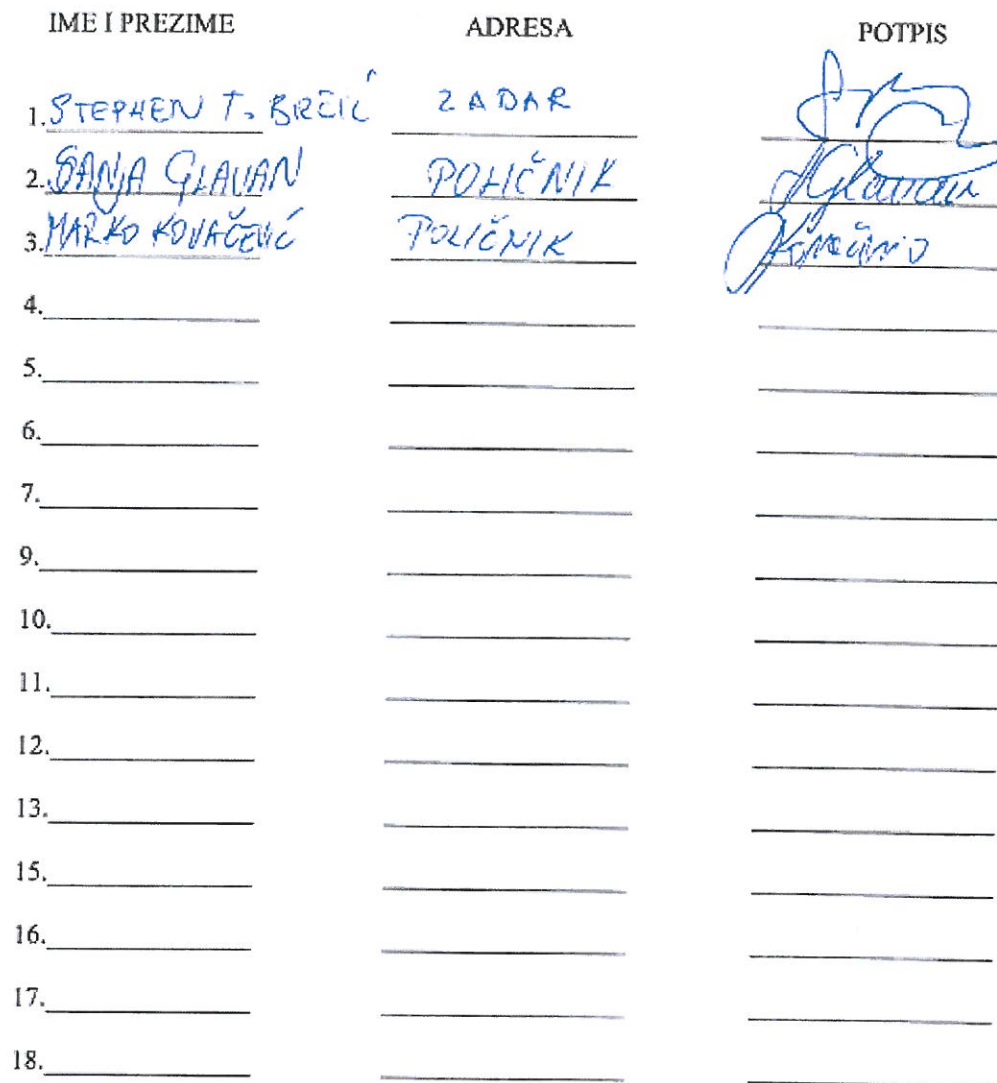 IME I PREZIME ADRESA POTPIS
1. STEPHEN T. BRČIĆ ZADAR
2. SANJA GLAVAN POLIČNIK Glavan
3. MARKO KOVAČEVIĆ POLIČNIK
4.
5.
6.
7.
9.
10.
11.
12.
13.
15.
16.
17.
18.